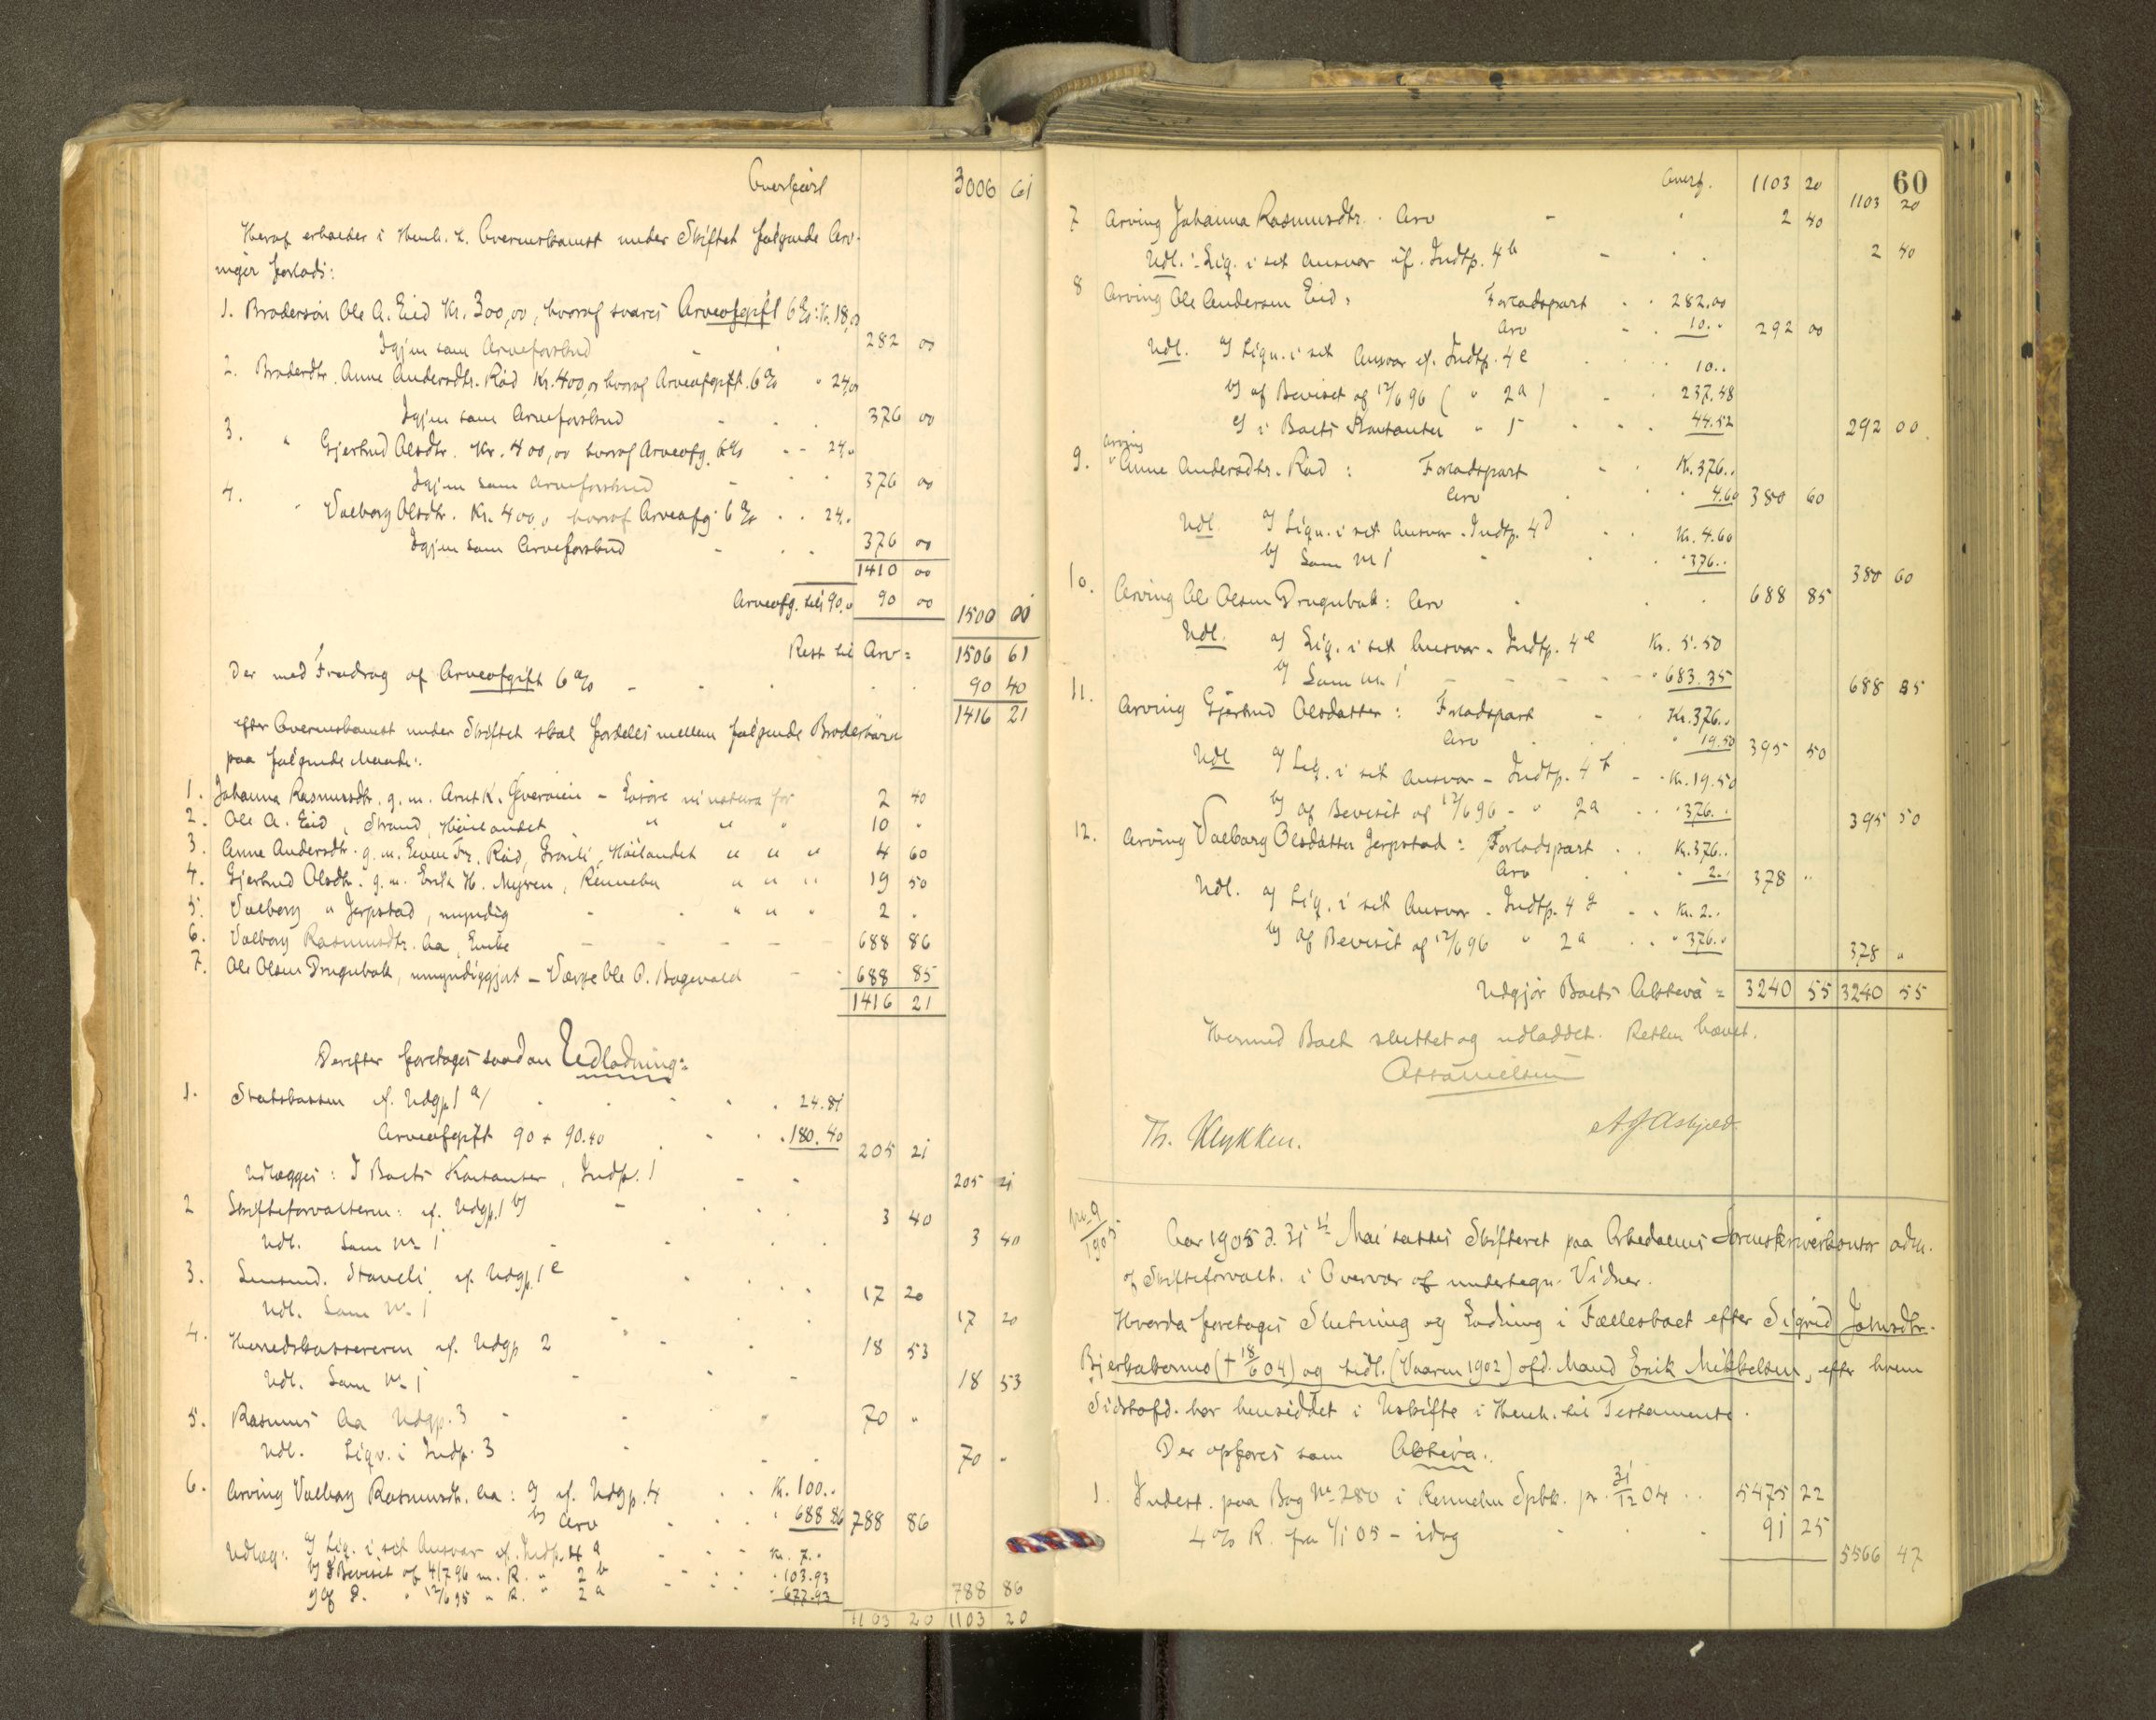 Overført 3006 61
Heraf erholder i Henh. t. Overenskomst under Skiftet følgende Arv-
inger forlods:
1. Brodersøn Ole A. Eid Kr. 300,00, hvoraf svares Arveafgift 6%: Kr. 18,00
Igjen som Arveforskud 282 00
2. Broderdtr. Anne Andersdtr. Rød Kr. 400,00 hvoraf Arveafgift 6% " 24,00
Igjen som Arveforskud 376 00
3. " Gjertrud Olsdtr. Kr. 400,00 hvoraf Arveafg. 6% - 24,00
Igjen som Arveforskud 376 00
4. " Valborg Olsdtr. Kr. 400,0 hvoraf Arveafg. 6% 24,
Igjen som Arveforskud 376 00
1410 00
Arveafg. tils. 90,0 90 00 1500 00
Rest til Arv = 1506 61
Der med Fradrag af Arveafgift 6% 90 40
1416 21
efter Overenskomst under Skiftet skal fordeles mellem følgende Broderbørn
paa følgende Maade:
1. Johanna Rasmusdtr. g. m. Arnt K. - Løsøre in natura for 2 40
2. Ole A. Eid, Strand, Høilandet " " " 10 "
3. Anne Andersdtr. g. m. Even Fr. Rød, Grønli, Høilandet " " " 4 60
4. Gjertrud Olsdtr. g. m. Erik H. Myren, Rennebu " " " 19 50
5. Valborg " Jerpstad, myndig " " " 2 "
6. Valborg Rasmusdtr. Aa, Enke 688 86
7. Ole Olsen Drugubak, umyndiggjort - Værge Ole O. Bogevald 688 85
1416 21
Derefter foretages saadan Udlodning:
1. Statskassen cf. Udgp. 1 a/ 24.81
Arveafgift 90 + 90.40 180.40 205 21
Udlægges: I Boets Kontanter, Indp. 1 205 21
2 Skifteforvalteren: cf. Udgp. 1 b/ 3 40
Udl. Som No 1 3 40
3. Lensmd. Staveli cf. Udgp. 1 c 17 20
Udl. Som No 1 17 20
4. Herredskassereren cf. Udgp 2 18 53
Udl. Som No 1 18 53
5. Rasmus Aa Udgp. 3 70 "
Udl. Liqv. i Indp. 3 70 "
6. Arving Valborg Rasmusdtr. Aa: a/ cf. Udgp. 4 Kr. 100..
b/ Arv " 688 86 788 86
Udlæg: a/ Liq. i sit Ansvar cf. Indp. 4 a Kr. 7..
b/ Beviset af 4/7 96 m. R. " 2 b " 103.93
c/ af D. " 12/6 95 " R. " 2 a " 677.93 788 86
1103 20 1103 20
60
Overf. 1103 20 1103 20
7 Arving Johanna Rasmusdtr. Arv 2 40
Udl. Liq. i sit Ansvar cf. Indtp. 4 b 2 40
8 Arving Ole Andersen Eid: Forlodspart 282,00
Arv 10.. 292 00
Udl. a/ Liqu. i sit Ansvar cf. Indtp. 4 c 10..
b/ af Beviset af 12/6 96 ( " 2 a ) 237.48
c/ i Boets Kontanter " 1 44.52 292 00
9. Arving Anne Andersdtr. Rød: Forlodspart Kr. 376..
Arv " 4.60 380 60
Udl. a/ Liqu. i sit Ansvar - Indtp. 4 d Kr. 4.60
b/ Som No 1 " 376.. 380 60
10. Arving Ole Olsen Drugubak: Arv 688 85
Udl. a/ Liq. i sit Ansvar - Indtp. 4 e Kr. 5.50
b/ Som No 1 " 683.35 688 85
11. Arving Gjertrud Olsdatter: Forlodspart Kr. 376..
Arv " 19.50 395 50
Udl a/ Liq. i sit Ansvar - Indtp. 4 f Kr. 19.50
b/ af Beviset af 12/6 96 - " 2 a " 376.. 395 50
12. Arving Valborg Olsdatter Jerpstad: Forlodspart Kr. 376..
Arv " 2.. 378 "
Udl. a/ Liq. i sit Ansvar - Indtp. 4 g Kr. 2..
b/ Af Beviset af 12/6 96 " 2 a " 376.. 378 "
Udgjør Boets Aktiva = 3240 55 3240 55
Hermed Boet sluttet og udloddet. Retten hævet.
Th. Klykken. A J Asbjel
No 9/1905
Aar 1905 d. 31te Mai sattes Skifteret paa Orkedalens Sorenskriverkontor adm.
af Skifteforvalt. i Overvær af undertegn. Vidner.
Hvorda foretoges Slutning og Lodning i Fællesboet efter Sigrid Johnsdtr.
Bjerkakermo († 18/6 04) og tidl. (Vaaren 1902) afd. Mand Erik Mikkelsen, efter hvem
Sidstafd. har hensiddet i Uskifte i Henh. til Testamente.
Der opføres som Aktiva:
1. Indest. paa Bog No 280 i Rennebu Spbk. pr. 31/12 04 5475 22
4% R. fra 1/1 05 - idag 91 25 5566 47